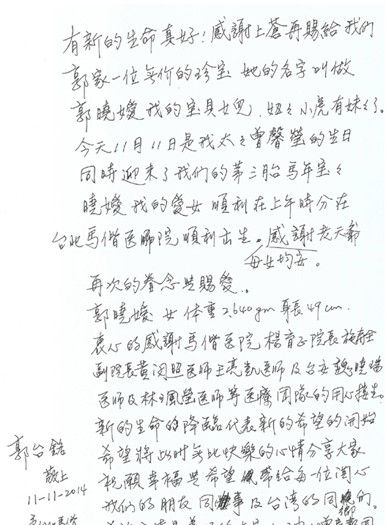 有新的生命真好!感謝上蒼再賜給我們
郭家一位無價的珍寶 她的名字叫做
郭曉嬡 我的宝貝女兒.妞々小虎有妹々了.
今天11月11日是我太々曾馨瑩的生日
同時迎來了我們的第三胎馬年宝々
曉嬡 我的愛女 順利在上午時分在
台北馬偕医院 順利出生。感謝老天爺
母女均安。
再次的眷念與賜愛.
郭曉嬡 女 体重2,640gm 身長49cm.
衷心的感謝馬偕医院 楊育正院長 施壽全
副院長黃閔照医師王亮凱医師及台安
医師及林 医師等医療團隊的用心接生.
新的生命的降臨代表新的希望的開始
希望將此時無比快樂的心情分享大家
祝願幸福與希望 帶給每一位関心
我們的朋友 同事及台湾的同鄉們.
郭台銘
敬上
11-11-2014